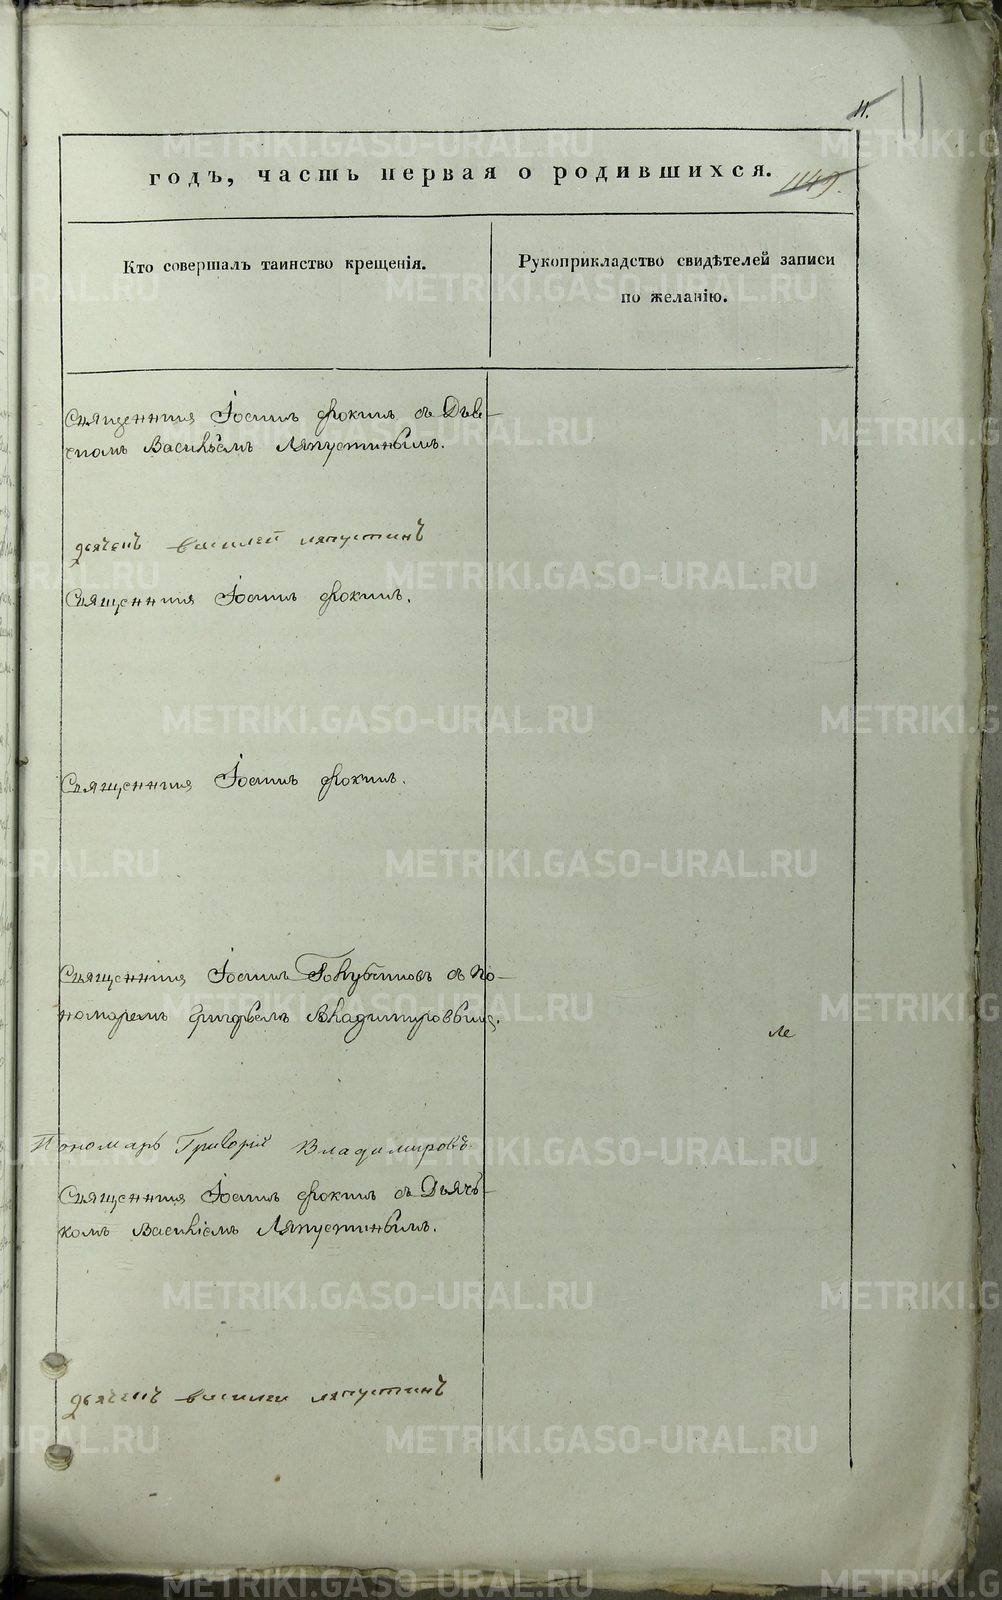 11.
11
годъ, часть первая о родившихся.
1149.
Кто совершалъ таинство крещенія.
Рукоприкладство свидѣтелей записи
по желанію.
Священникъ Іоаннъ Фокинъ съ Дьяч-
комъ Василіемъ Ляпустинымъ.
дьячекъ василей ляпустинъ
Священникъ Іоаннъ Фокинъ.
Священникъ Іоаннъ Фокинъ.
Священникъ Іоаннъ Голубчиковъ съ По-
номаремъ Григорьемъ Владимировымъ.
Пономарь Григорій Владимировъ
Священникъ Іоаннъ Фокинъ съ Дьячь-
комъ Василіемъ Ляпустинымъ.
дьячекъ василеи ляпустинъ
METRIKI.GASO-URAL.RU